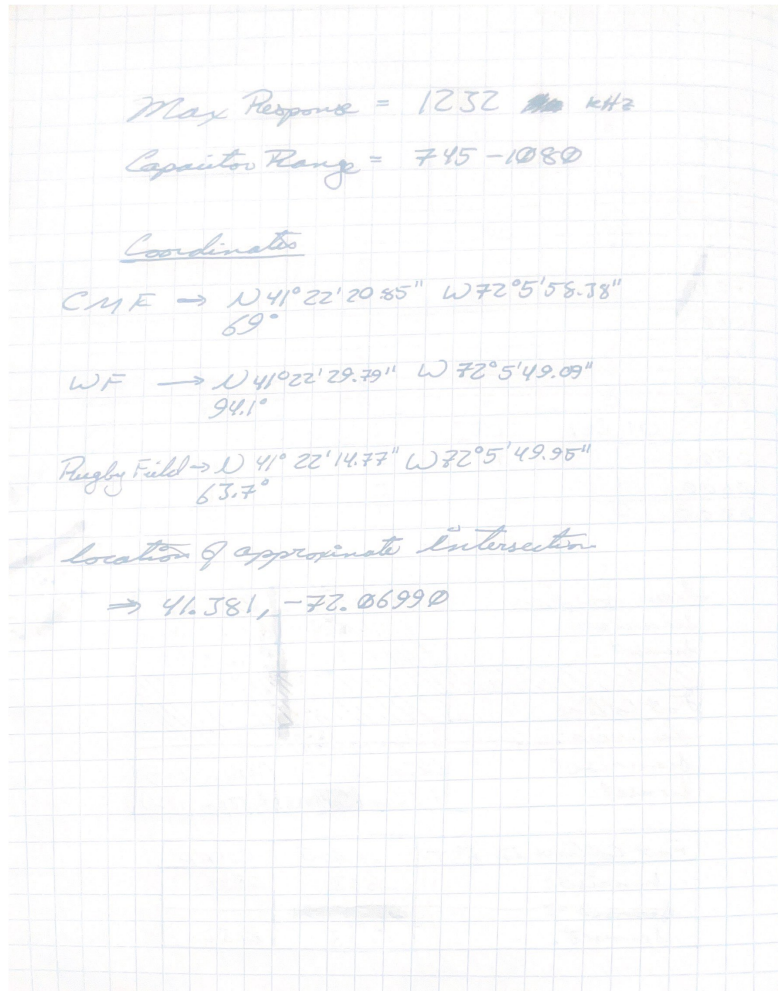 Max Response = 1232 kHz
Capacitor Range = 745 - 1080
Coordinates
CME → N 41° 22' 20.85" W 72° 5' 58.38"
69°
WF → N 41° 22' 29.79" W 72° 5' 49.09"
94.1°
Rugby Field → N 41° 22' 14.77" W 72° 5' 49.95"
63.7°
location of approximate intersection
⇒ 41.381, -72.06990